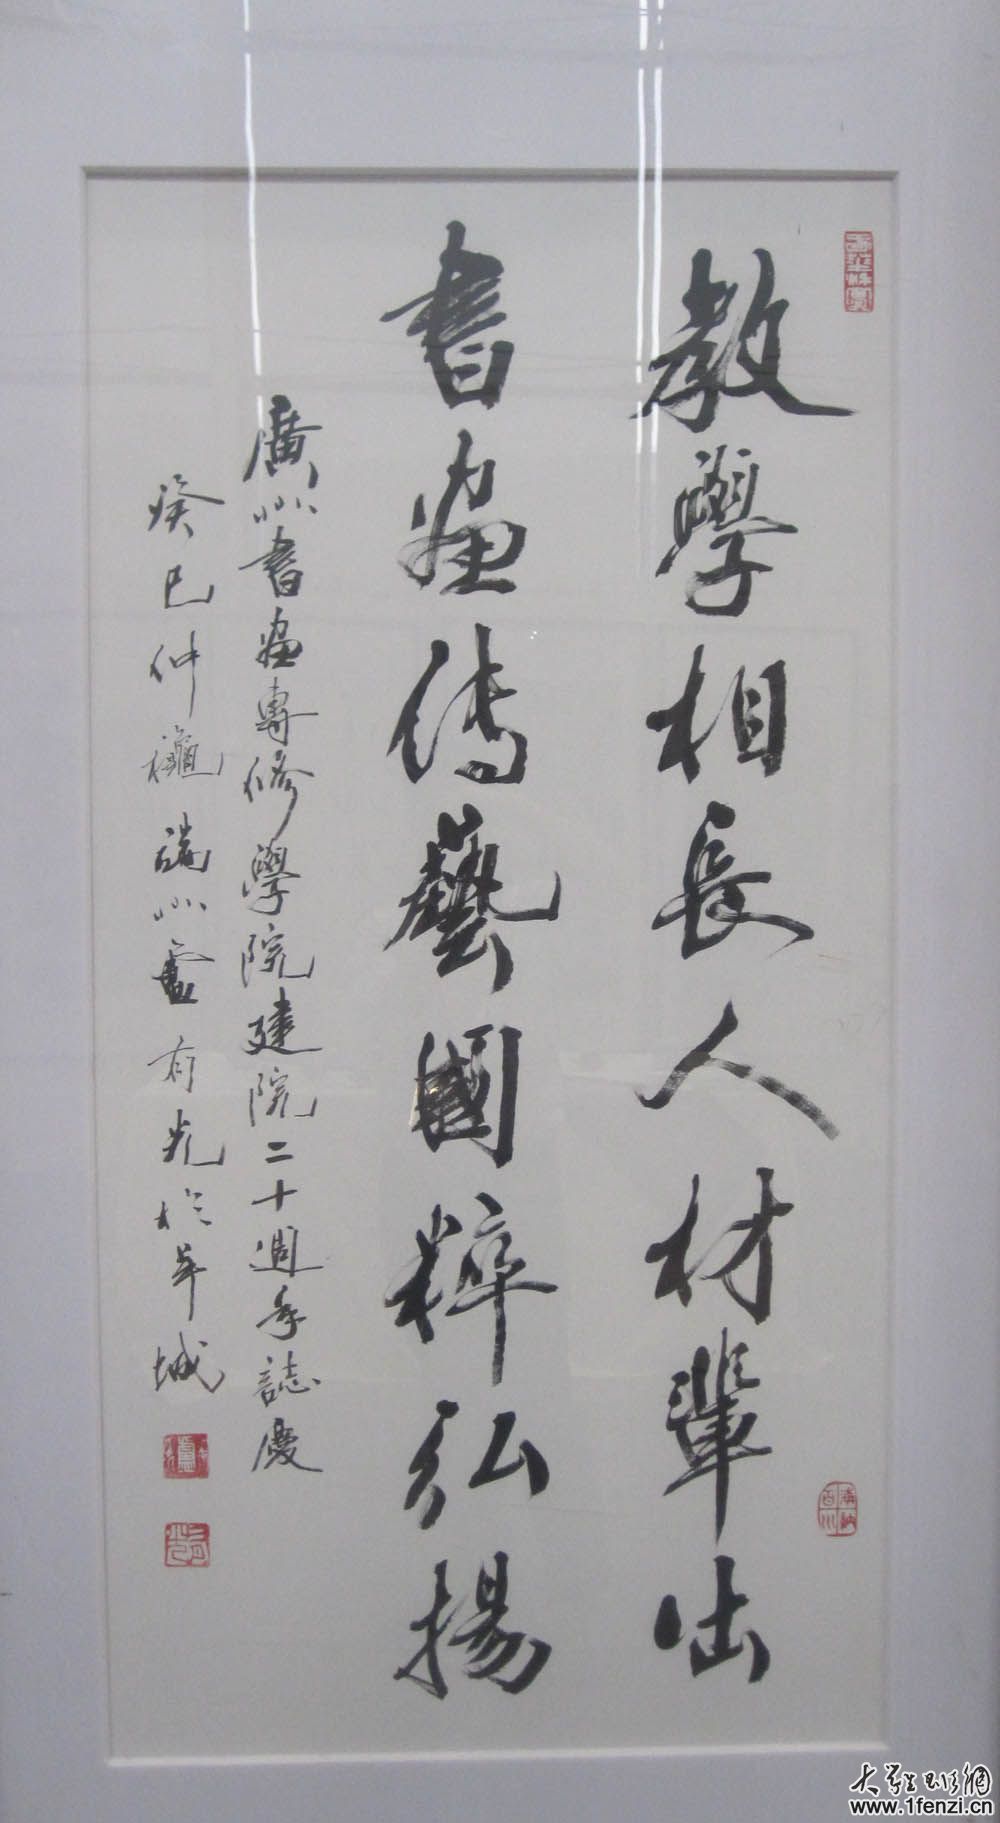 教學相長人材輩出
書畫傳藝國粹弘揚
廣州書畫專修學院建院二十週年誌慶
癸巳仲龝端州盧有光於羊城
海納百川
大學生書法網
www.1fenzi.cn